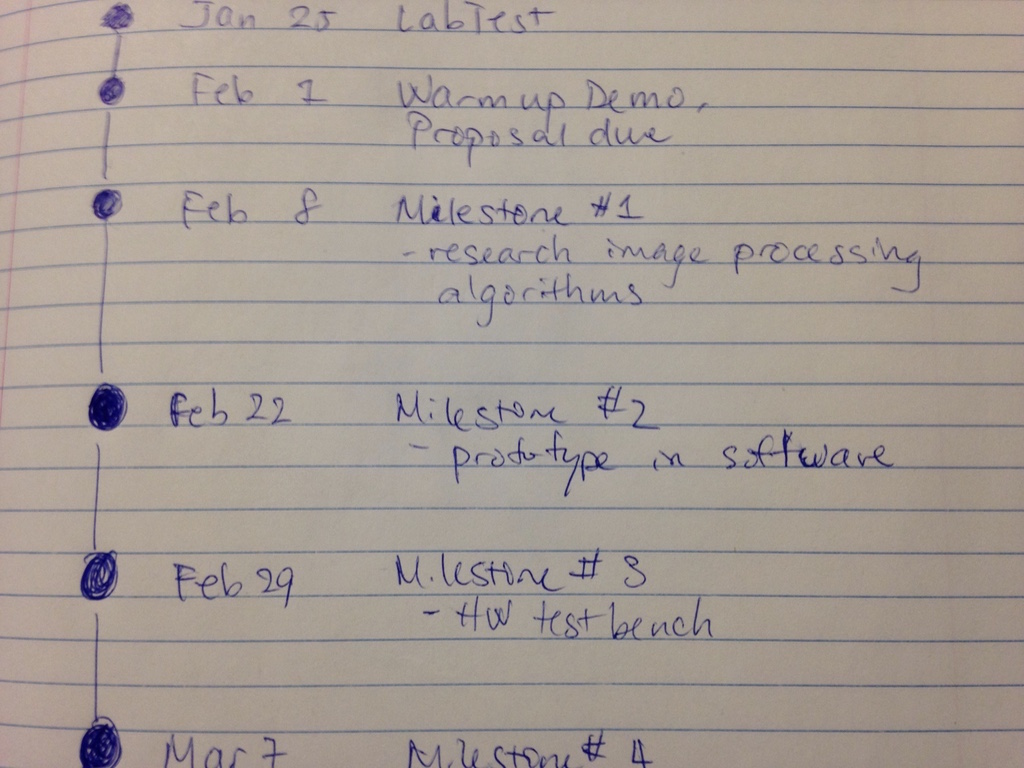 Jan 25 LabTest
Feb 1 Warmup Demo,
Proposal due
Feb 8 Milestone #1
- research image processing
algorithms
Feb 22 Milestone #2
- prototype in software
Feb 29 Milestone # 3
- HW testbench
Mar 7 Milestone # 4